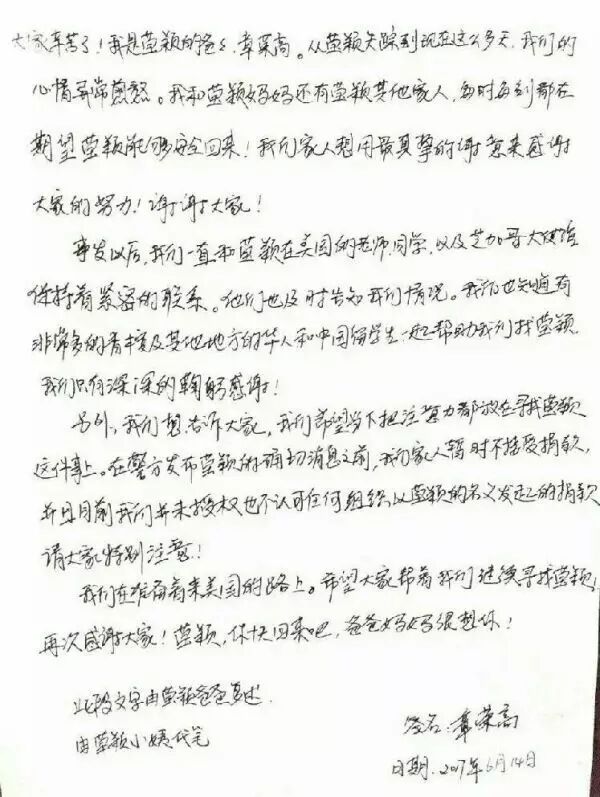 大家辛苦了！我是莹颖的爸爸，章荣高。从莹颖失踪到现在这么多天，我们的
心情异常煎熬。我和莹颖妈妈还有莹颖其他家人，每时每刻都在
期望莹颖能够安全回来！我们家人想用最真挚的谢意来感谢
大家的努力！谢谢大家！
事发以后，我们一直和莹颖在美国的老师、同学，以及芝加哥大使馆
保持着紧密的联系。他们也及时告知我们情况。我们也知道有
非常多的香槟及其他地方的华人和中国留学生一起帮助我们找莹颖
我们只有深深的鞠躬感谢！
另外，我们想告诉大家，我们希望当下把注意力都放在寻找莹颖
这件事上。在警方发布莹颖的确切消息之前，我们家人暂时不接受捐款，
并且目前我们并未授权也不认可任何组织以莹颖的名义发起的捐款
请大家特别注意！
我们在准备着来美国的路上。希望大家帮着我们继续寻找莹颖！
再次感谢大家！莹颖，你快回来吧，爸爸妈妈很想你！
此段文字由莹颖爸爸口述.
由莹颖小姨代笔
签名：章荣高
日期.2017年6月14日